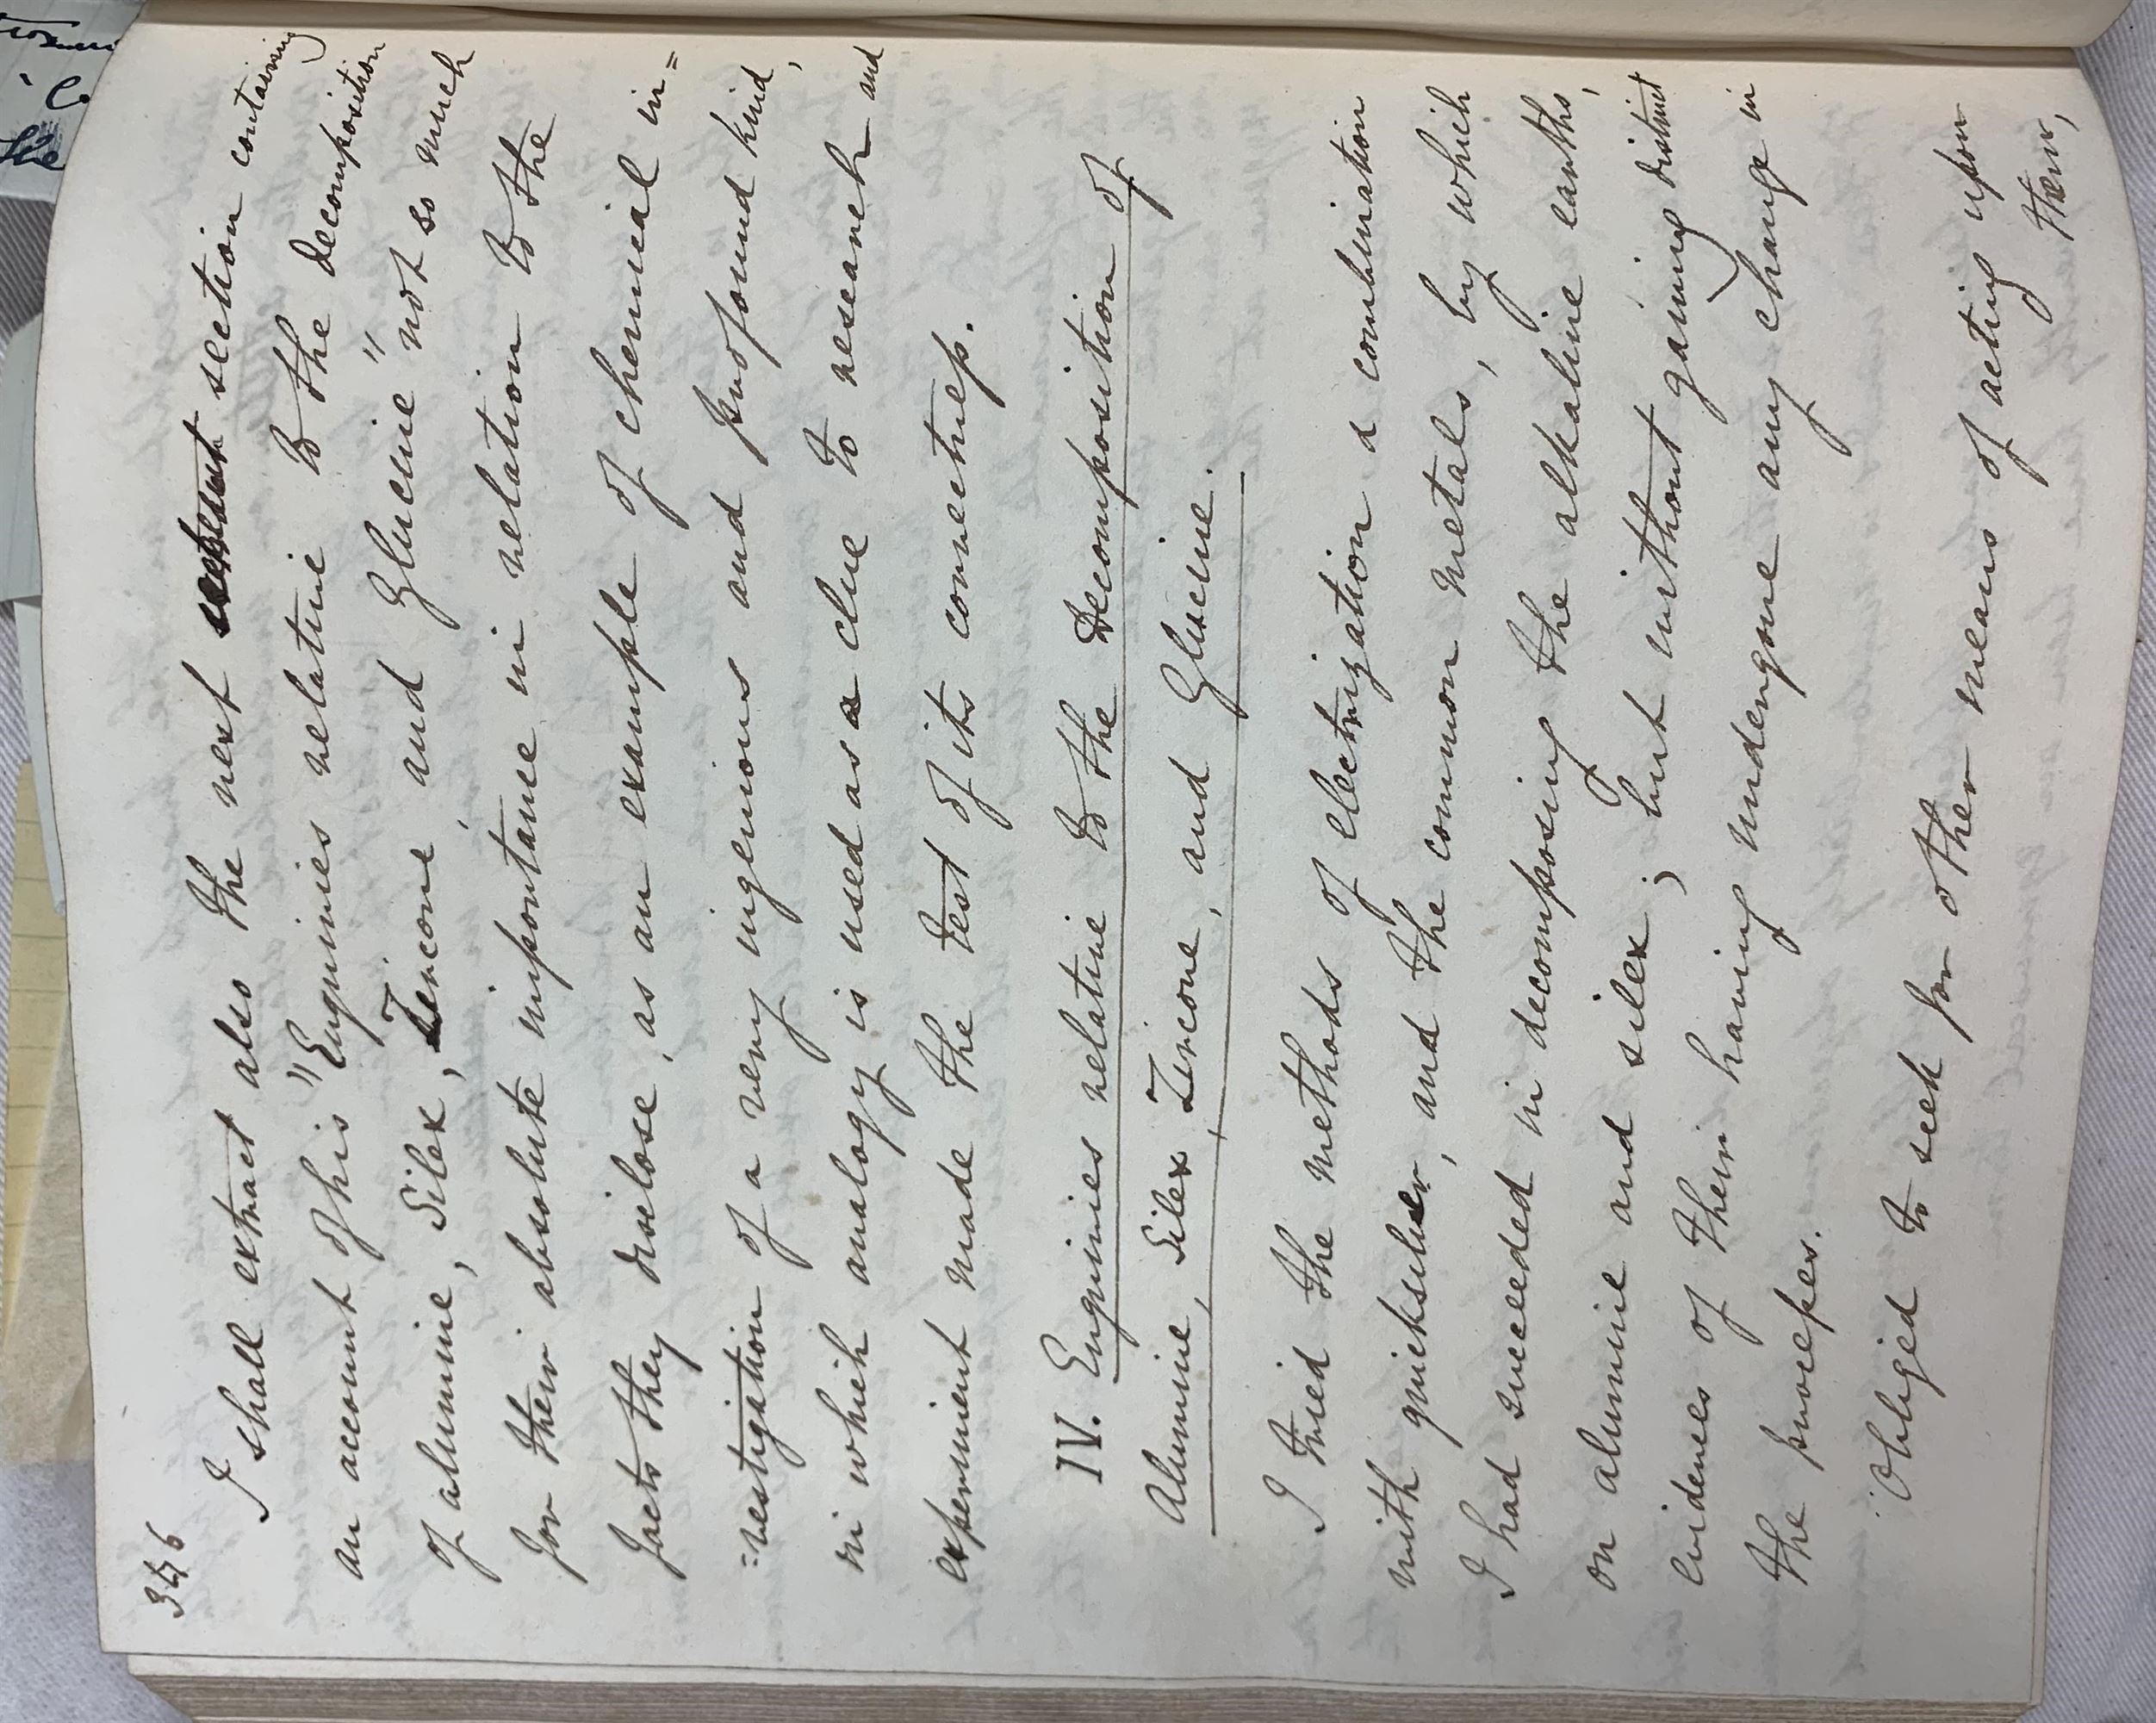 346
I shall extract also the next section containing
an account of his "Enquiries relative to the decomposition
of alumine, Silex, Zircone, and Glucine" not so much
for their absolute importance in relation to the
facts they disclose, as an example of chemical in=
=vestigation of a very ingenious and profound kind,
in which analogy is used as a clue to research and
experiment made the test of its correctness.
IV. Enquiries relative to the Decomposition of
Alumine, Silex, Zircone, and Glucine.
I tried the methods of electrization & combination
with quicksilver, and the common metals, by which
I had succeeded in decomposing the alkaline earths,
on alumine and silex; but without gaining distinct
evidences of their having undergone any change in
the process.
Obliged to seek for other means of acting upon
them,
the